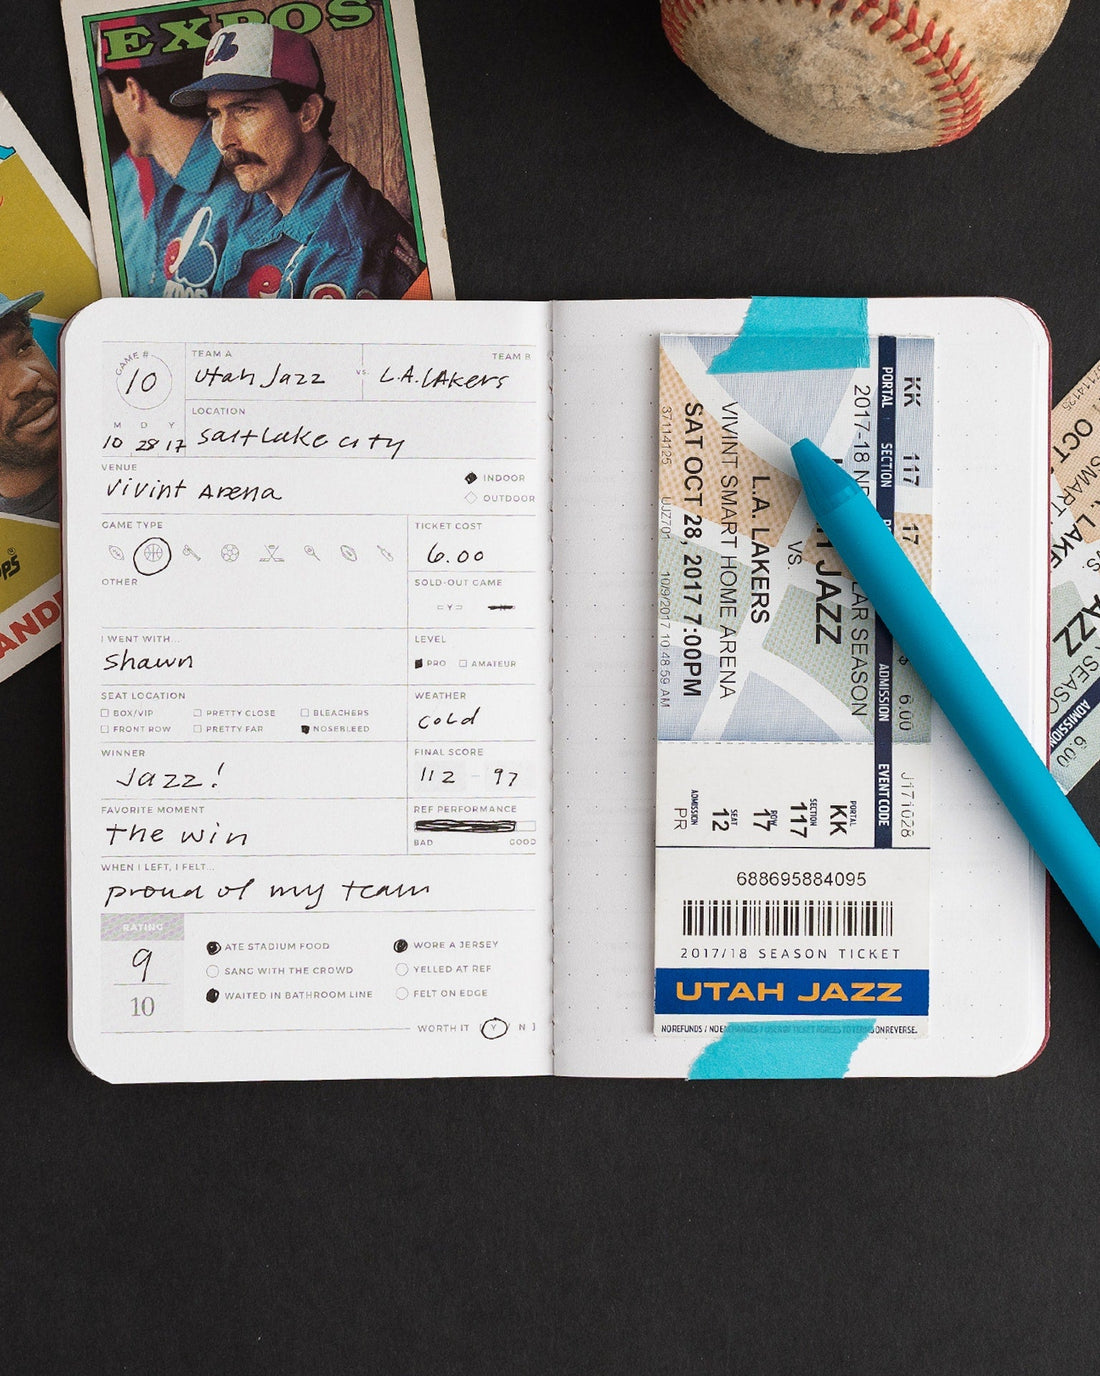 EXPOS
GAME #
10
TEAM A
Utah Jazz
VS.
TEAM B
L.A. LAkers
M D Y
10 28 17
LOCATION
salt lake city
VENUE
Vivint Arena
INDOOR
OUTDOOR
GAME TYPE
OTHER
TICKET COST
6.00
SOLD-OUT GAME
Y
I WENT WITH...
Shawn
LEVEL
PRO AMATEUR
SEAT LOCATION
BOX/VIP PRETTY CLOSE BLEACHERS
FRONT ROW PRETTY FAR NOSEBLEED
WEATHER
cold
WINNER
Jazz!
FINAL SCORE
112 - 97
FAVORITE MOMENT
the win
REF PERFORMANCE
BAD GOOD
WHEN I LEFT, I FELT...
proud of my team
RATING
9
10
ATE STADIUM FOOD WORE A JERSEY
SANG WITH THE CROWD YELLED AT REF
WAITED IN BATHROOM LINE FELT ON EDGE
WORTH IT [ Y / N ]
KK 117 17
PORTAL SECTION
ADMISSION EVENT CODE
6.00 J171028
2017-18 LAR SEASON
JAZZ
VS.
L.A. LAKERS
VIVINT SMART HOME ARENA
SAT OCT 28, 2017 7:00PM
37114125 UJZ701 10/9/2017 10:48:59 AM
PORTAL
KK
SECTION
117
ROW
17
SEAT
12
ADMISSION
PR
688695884095
2017/18 SEASON TICKET
UTAH JAZZ
NO REFUNDS / NO EXCHANGES / USER OF TICKET AGREES TO TERMS ON REVERSE.
OCT
SMART
LAKE
VS.
AZZ
SEASO
ADMISSION
6.00